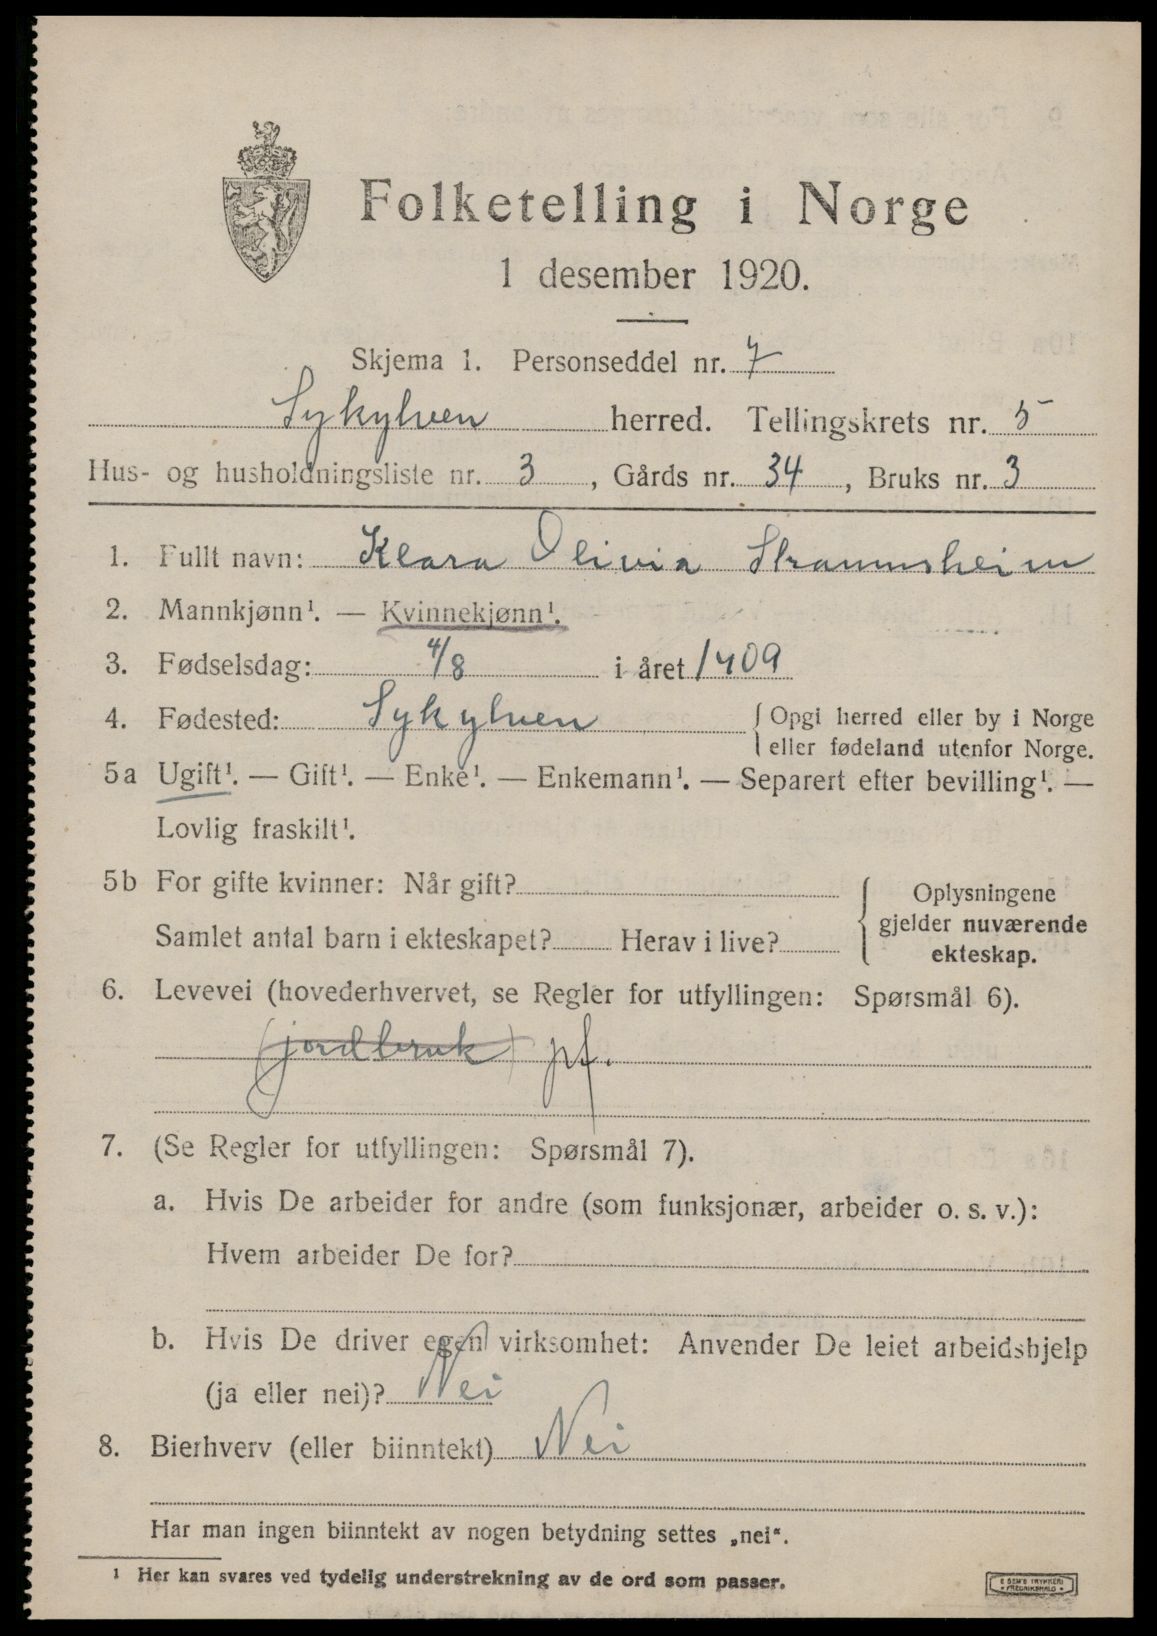 Folketelling i Norge
1 desember 1920.
Skjema 1. Personseddel nr. 7
Sykylven herred. Tellingskrets nr. 5
Hus- og husholdningsliste nr. 3, Gårds nr. 34, Bruks nr. 3
1. Fullt navn: Klara Olivia Straumsheim
2. Mannkjønn¹. — Kvinnekjønn¹.
3. Fødselsdag: 4/8 i året 1909
4. Fødested: Sykylven { Opgi herred eller by i Norge
eller fødeland utenfor Norge.
5a Ugift¹. — Gift¹. — Enke¹. — Enkemann¹. — Separert efter bevilling¹. —
Lovlig fraskilt¹.
5b For gifte kvinner: Når gift?
Samlet antal barn i ekteskapet? Herav i live?
{ Oplysningene
gjelder nuværende
ekteskap.
6. Levevei (hovederhvervet, se Regler for utfyllingen: Spørsmål 6).
(jordbruk) pf.
7. (Se Regler for utfyllingen: Spørsmål 7).
a. Hvis De arbeider for andre (som funksjonær, arbeider o. s. v.):
Hvem arbeider De for?
b. Hvis De driver egen virksomhet: Anvender De leiet arbeidshjelp
(ja eller nei)? Nei
8. Bierhverv (eller biinntekt) Nei
Har man ingen biinntekt av nogen betydning settes „nei“.
¹ Her kan svares ved tydelig understrekning av de ord som passer.
E SEM'S TRYKKERI
FREDRIKSHALD